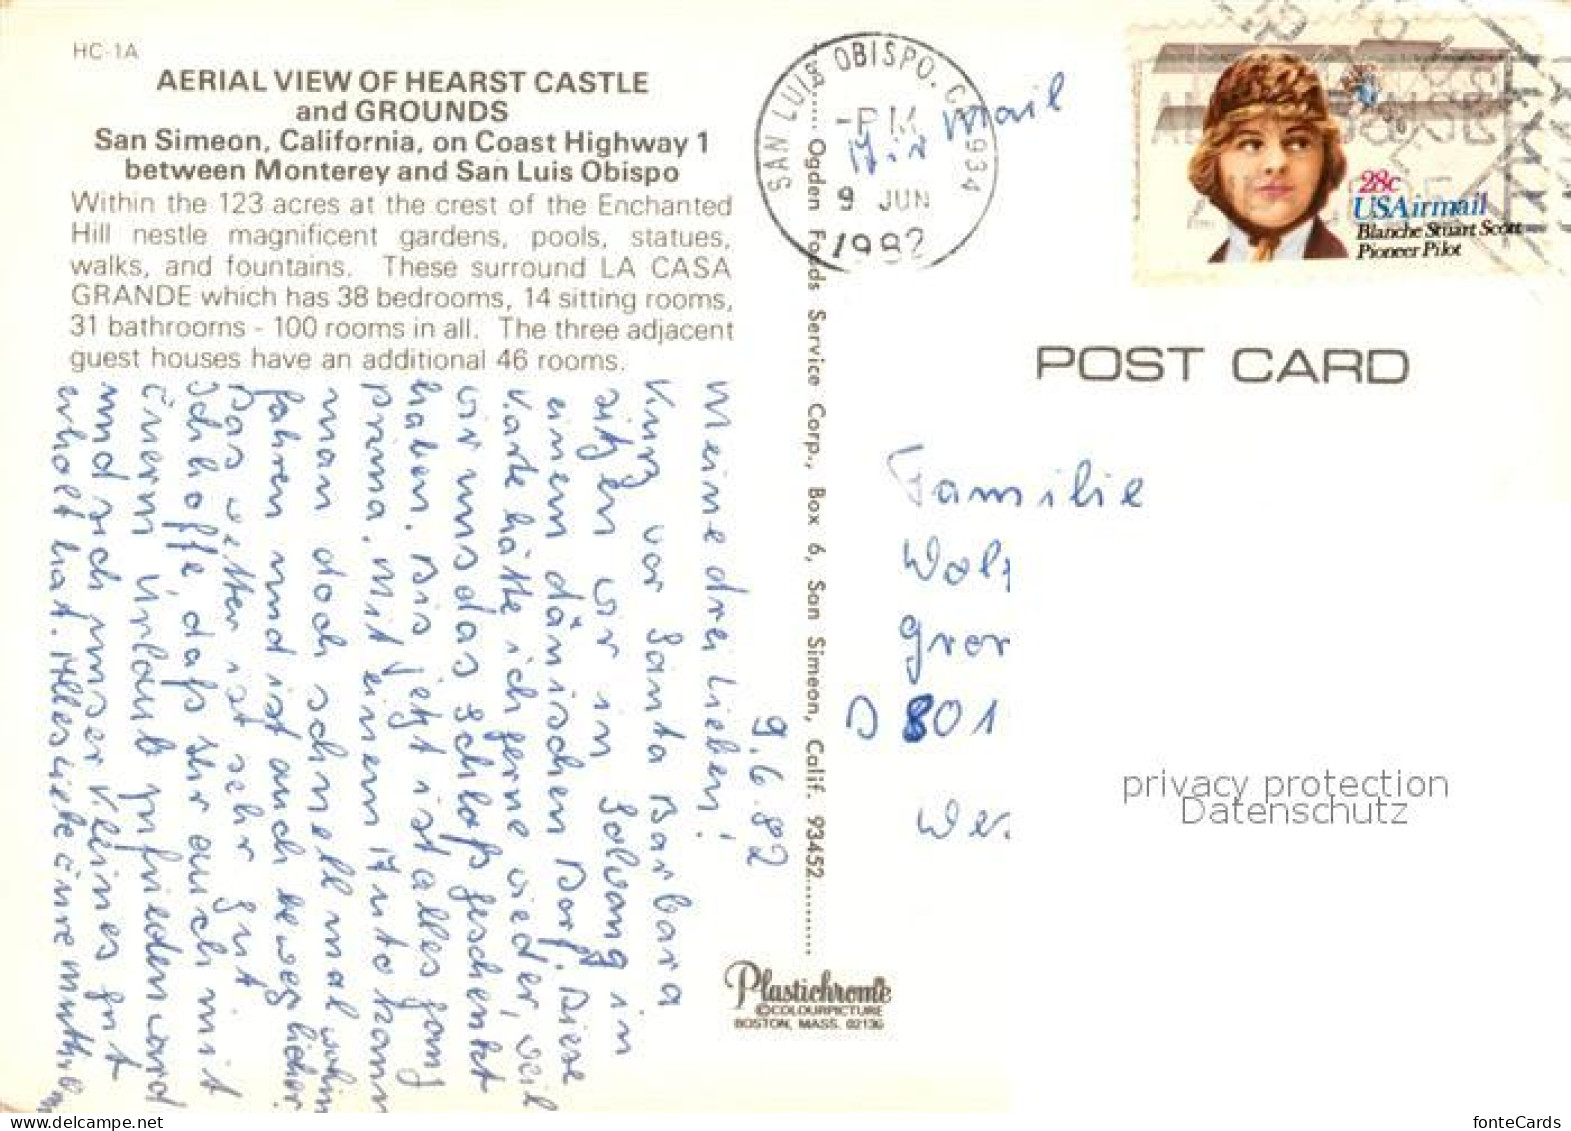 HC-1A
AERIAL VIEW OF HEARST CASTLE
and GROUNDS
San Simeon, California, on Coast Highway 1
between Monterey and San Luis Obispo
Within the 123 acres at the crest of the Enchanted
Hill nestle magnificent gardens, pools, statues,
walks, and fountains. These surround LA CASA
GRANDE which has 38 bedrooms, 14 sitting rooms,
31 bathrooms - 100 rooms in all. The three adjacent
guest houses have an additional 46 rooms.
9.6.82
Meine drei Lieben!
Kurz vor Santa Barbara
sitzen wir in Solvang in
einem dänischen Dorf. Diese
Karte hätte ich gerne wieder, weil
wir uns das Schloß geschenkt
haben. Bis jetzt ist alles ganz
prima. Mit einem Auto kann
man doch schnell mal wohin
fahren und ist auch beweglicher.
Das Wetter ist sehr gut.
Ich hoffe, daß Ihr auch mit
Eurem Urlaub zufrieden ward
und sich unser Kleines gut
erholt hat. Alles Liebe Eure
Ogden Foods Service Corp., Box 6, San Simeon, Calif. 93452
Plastichrome
©COLOURPICTURE
BOSTON, MASS. 02130
SAN LUIS OBISPO, CA 934
-PM
9 JUN
1982
Air Mail
28c
USAirmail
Blanche Stuart Scott
Pioneer Pilot
POST CARD
Familie
Wolf
D 801
privacy protection
Datenschutz
www.delcampe.net
fonteCards